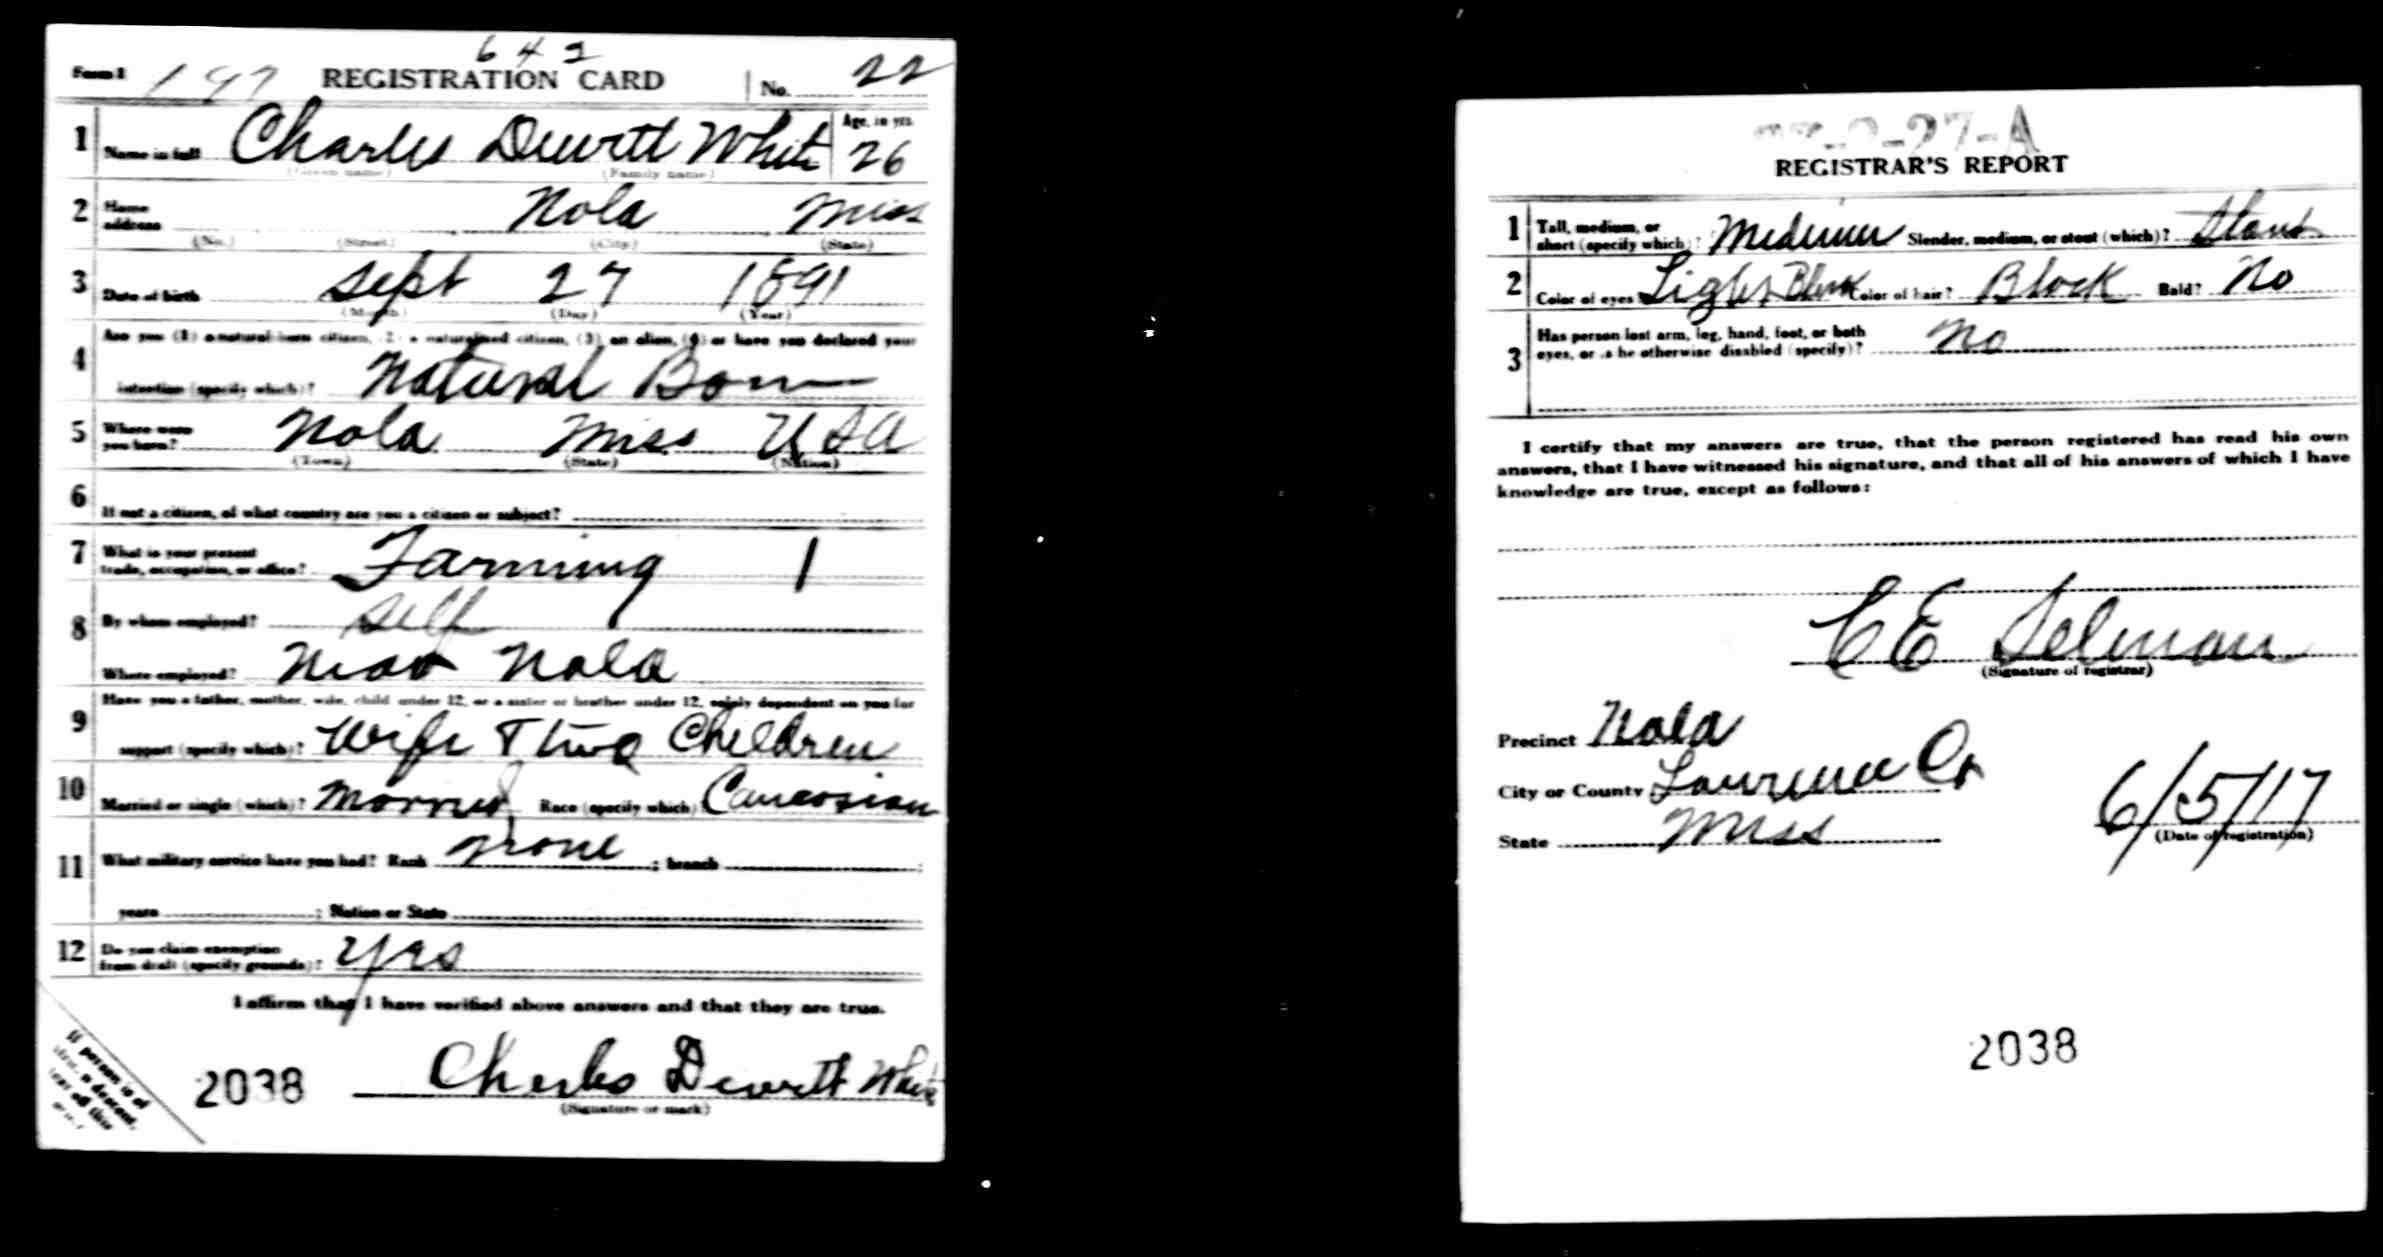 642
Form 1 197 REGISTRATION CARD No. 22
1 Name in full Charles Dewitt White Age, in yrs. 26
(Given name) (Family name)
2 Home address Nola Miss
(No.) (Street) (City) (State)
3 Date of birth Sept 27 1891
(Month) (Day) (Year)
4 Are you (1) a natural-born citizen, (2) a naturalized citizen, (3) an alien, (4) or have you declared your
intention (specify which)? Natural Born
5 Where were you born? Nola Miss USA
(Town) (State) (Nation)
6 If not a citizen, of what country are you a citizen or subject?
7 What is your present trade, occupation, or office? Farming 1
8 By whom employed? Self
Where employed? Near Nola
9 Have you a father, mother, wife, child under 12, or a sister or brother under 12, solely dependent on you for
support (specify which)? Wife & two Children
10 Married or single (which)? Married Race (specify which) Caucasian
11 What military service have you had? Rank None ; branch ;
years ; Nation or State
12 Do you claim exemption from draft (specify grounds)? Yes
I affirm that I have verified above answers and that they are true.
2038 Charles Dewitt White
(Signature or mark)
If person is of
of this
REGISTRAR'S REPORT
1 Tall, medium, or short (specify which)? Medium Slender, medium, or stout (which)? Stout
2 Color of eyes Light Blue Color of hair? Black Bald? No
3 Has person lost arm, leg, hand, foot, or both eyes, or is he otherwise disabled (specify)? No
I certify that my answers are true, that the person registered has read his own
answers, that I have witnessed his signature, and that all of his answers of which I have
knowledge are true, except as follows:
C E Selman
(Signature of registrar)
Precinct Nola
City or County Lawrence Co
State Miss
6/5/17
(Date of registration)
2038